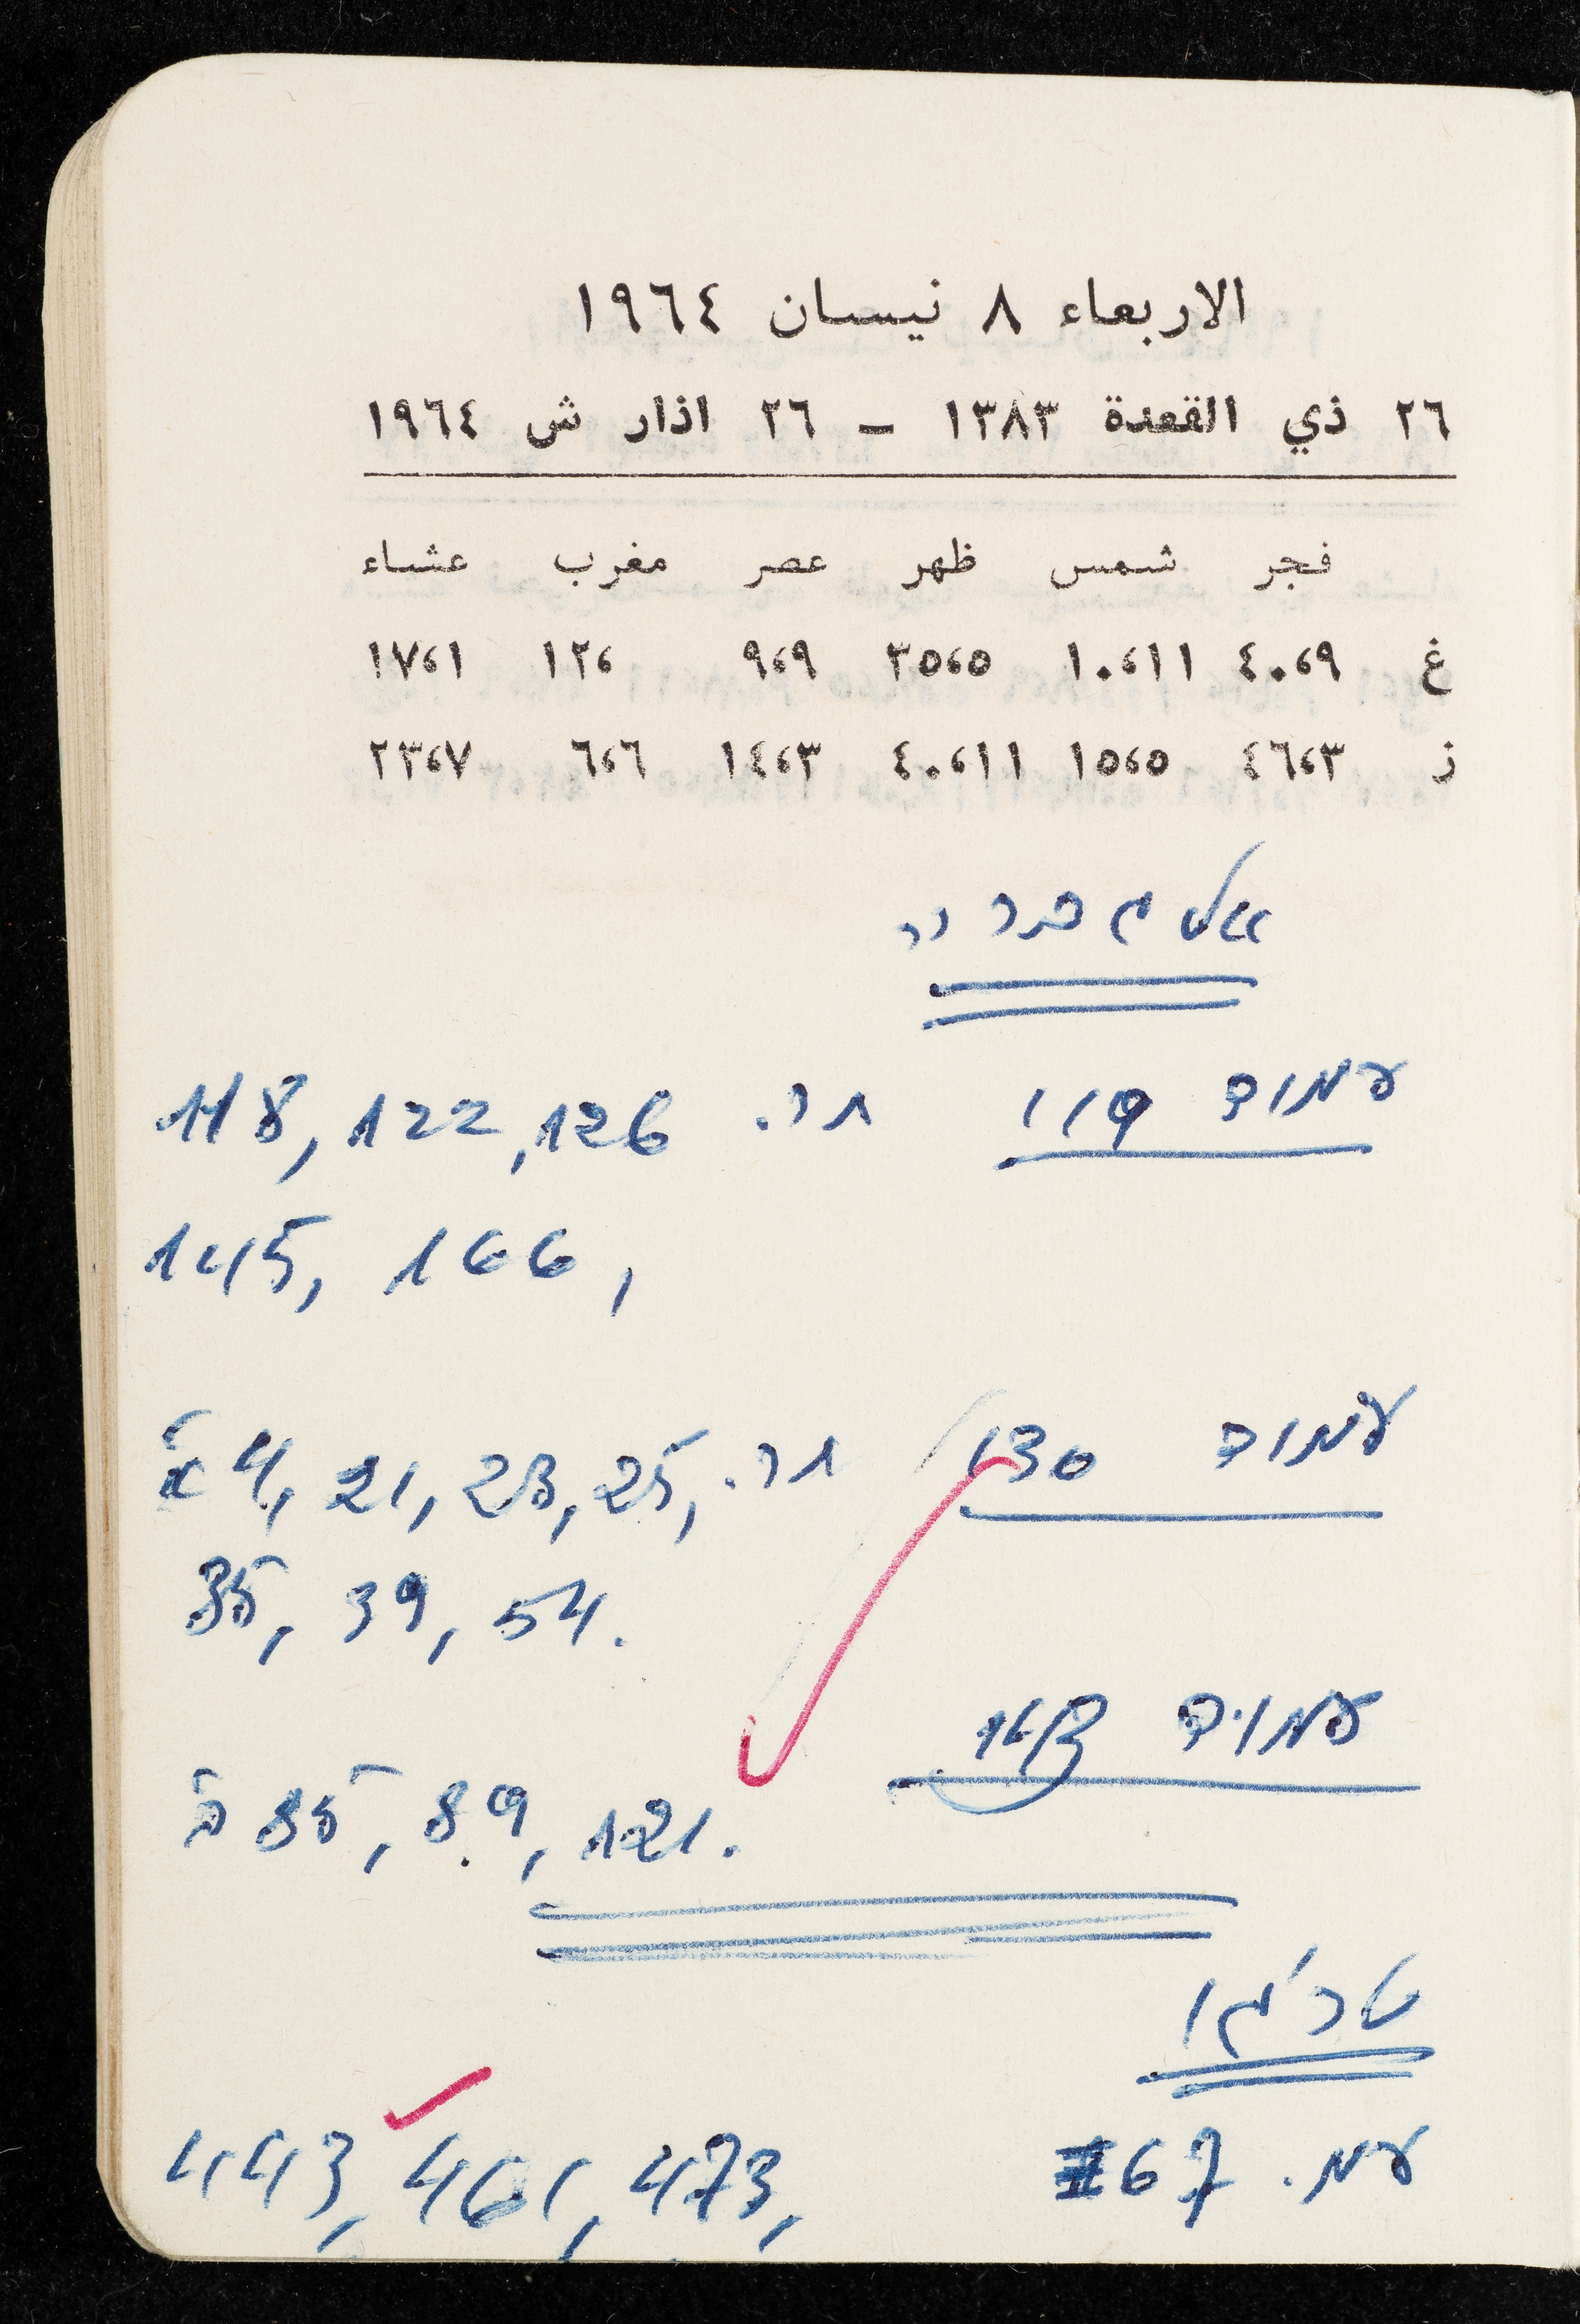 الاربعاء ٨ نيسان ١٩٦٤
٢٦ ذي القعدة ١٣٨٣ – ٢٦ اذار ش ١٩٦٤
فجر شمس ظهر عصر مغرب عشاء
غ ٤٠،٩ ١٠،١١ ٣٥،٥ ٩،٩ ١٢، ١٧،١
ز ٤٦،٣ ١٥،٥ ٤٠،١١ ١٤،٣ ٦،٦ ٢٣،٧
עמוד
118, 122, 126
145, 166,
עמוד 130
4, 21, 23, 25,
35, 39, 54.
עמוד
35, 89, 121.
עמ. 67
443, 461, 473,